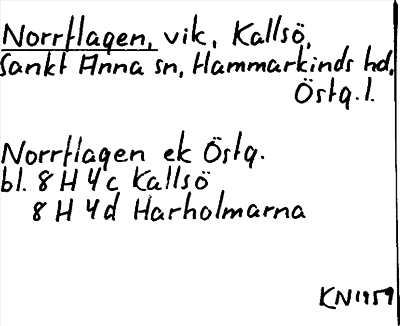 Norrflagen, vik, Kallsö,
Sankt Anna sn, Hammarkinds hd,
Östg. l.
Norrflagen ek Östg.
bl. 8 H 4 c Kallsö
8 H 4 d Harholmarna
KN 1959